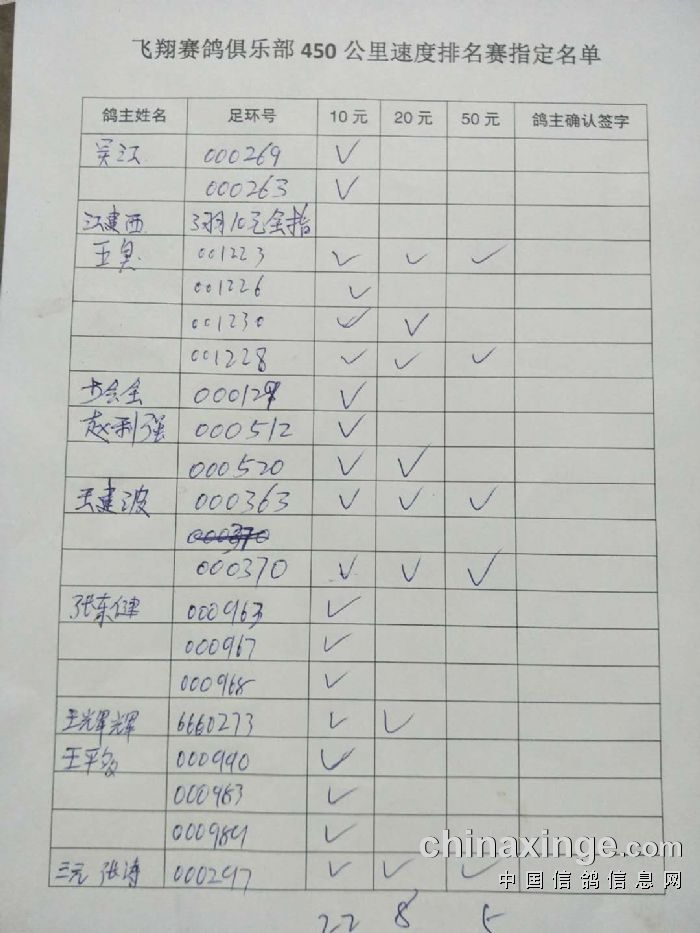 飞翔赛鸽俱乐部 450 公里速度排名赛指定名单
鸽主姓名 足环号 10 元 20 元 50 元 鸽主确认签字
吴江 000269 ✓
000263 ✓
江建西 3羽10元全指
王臭 001223 ✓ ✓ ✓
001226 ✓
001230 ✓ ✓
001228 ✓ ✓ ✓
✓
赵利强 000512 ✓
000520 ✓ ✓
王建波 000363 ✓ ✓ ✓
000370
000370 ✓ ✓ ✓
张东健 000963 ✓
000967 ✓
000968 ✓
王辉辉 6660273 ✓ ✓
王平 000990 ✓
000983 ✓
000989 ✓
三元 张涛 000297 ✓ ✓ ✓
22 8 5
chinaxinge.com
中国信鸽信息网